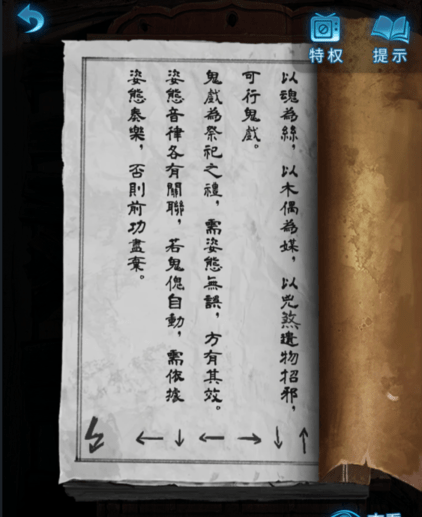 特权
提示
以魂為絲，以木偶為媒，以兇煞遺物招邪，
可行鬼戲。
鬼戲為祭祀之禮，需姿態無誤，方有其效。
姿態音律各有關聯，若鬼傀自動，需依據
姿態奏樂，否則前功盡棄。
↑↓→←↓←